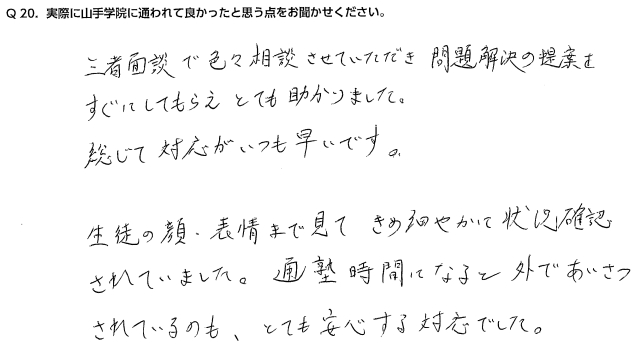 Q 20. 実際に山手学院に通われて良かったと思う点をお聞かせください。
三者面談で色々相談させていただき 問題解決の提案を
すぐにしてもらえ とても助かりました。
総じて 対応がいつも早いです。
生徒の顔・表情まで見て きめ細やかに状況確認
されていました。通塾時間になると外であいさつ
されているのも、とても安心する対応でした。